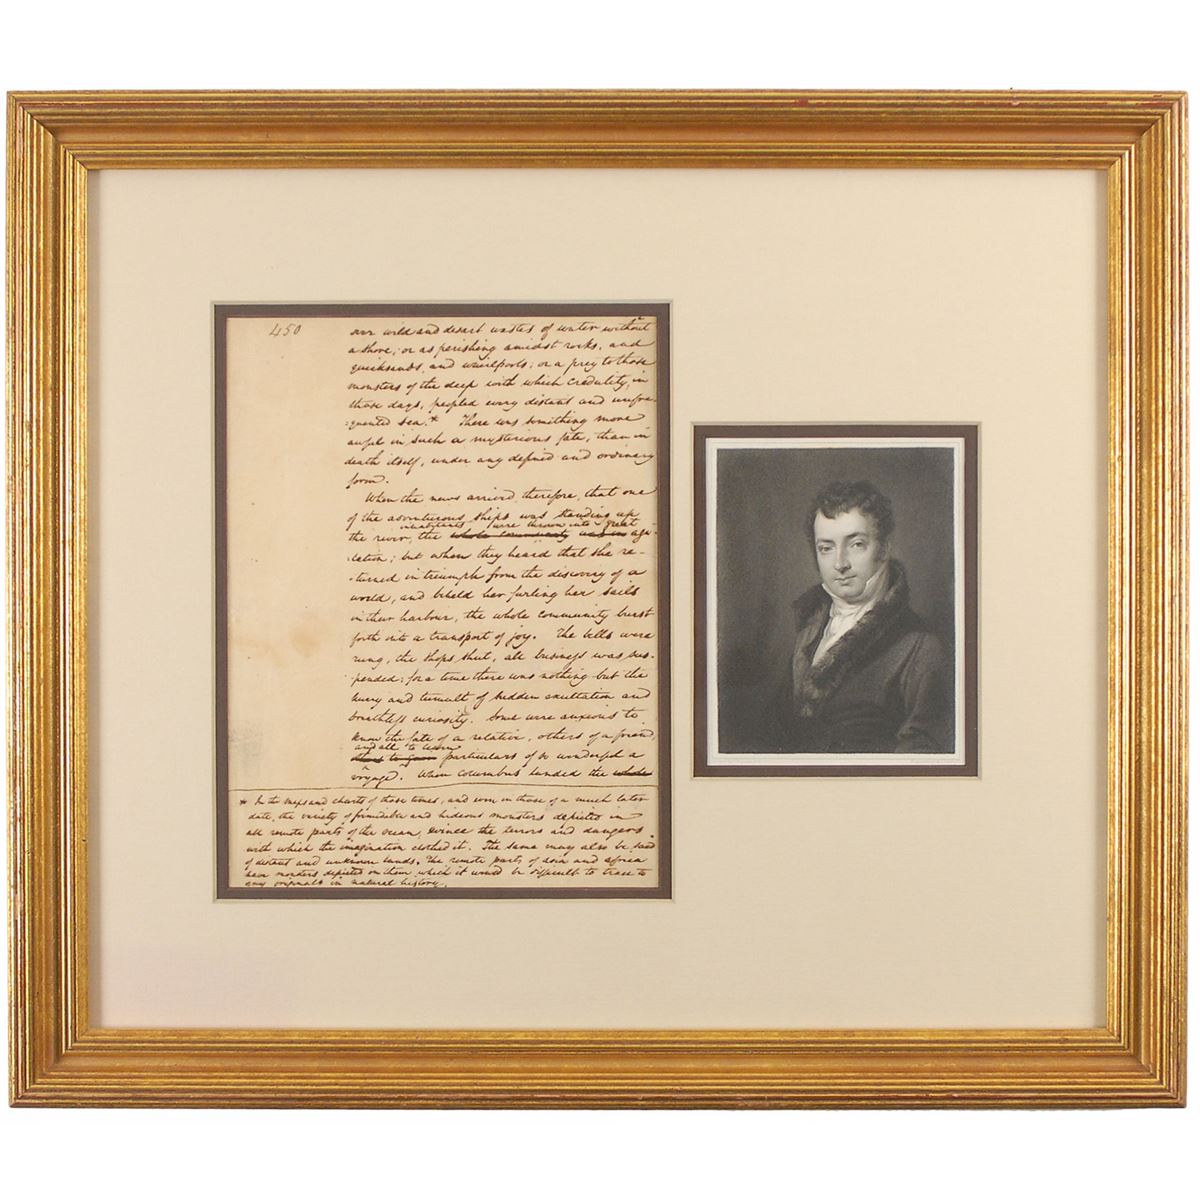 450
over wild and desart wastes of water without
a shore; or as perishing amidst rocks, and
quicksands, and whirlpools; or a prey to those
monsters of the deep with which credulity, in
those days, peopled every distant and unfre-
quented sea.* There was something more
awful in such a mysterious fate, than in
death itself, under any defined and ordinary
form.
When the news arrived therefore, that one
of the adventurous ships was standing up
inhabitants were thrown into great
the river, the whole community was in agi-
-tation; but when they heard that she re-
-turned in triumph from the discovery of a
world, and beheld her furling her sails
in their harbour, the whole community burst
forth into a transport of joy. The bells were
rung, the shops shut, all business was sus-
-pended: for a time there was nothing but the
hurry and tumult of sudden exultation and
breathless curiosity. Some were anxious to
know the fate of a relative, others of a friend,
and all to learn
particulars of so wonderful a
voyage. When Columbus landed the whole
* In the maps and charts of those times, and even in those of a much later
date, the variety of formidable and hideous monsters depicted in
all remote parts of the ocean, evince the terrors and dangers
with which the imagination clothed it. The same may also be said
of distant and unknown lands. The remote parts of asia and africa
have monsters depicted on them which it would be difficult to trace to
any originals in natural history.